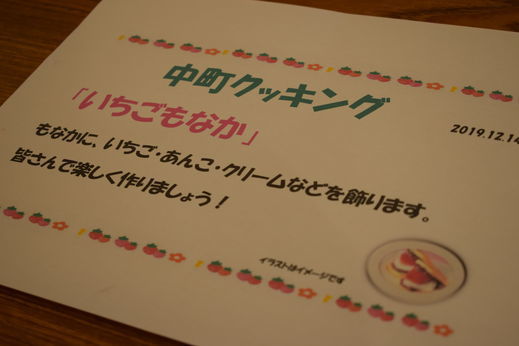 中町クッキング
2019.12.14
「いちごもなか」
もなかに、いちご・あんこ・クリームなどを飾ります。
皆さんで楽しく作りましょう!
イラストはイメージです